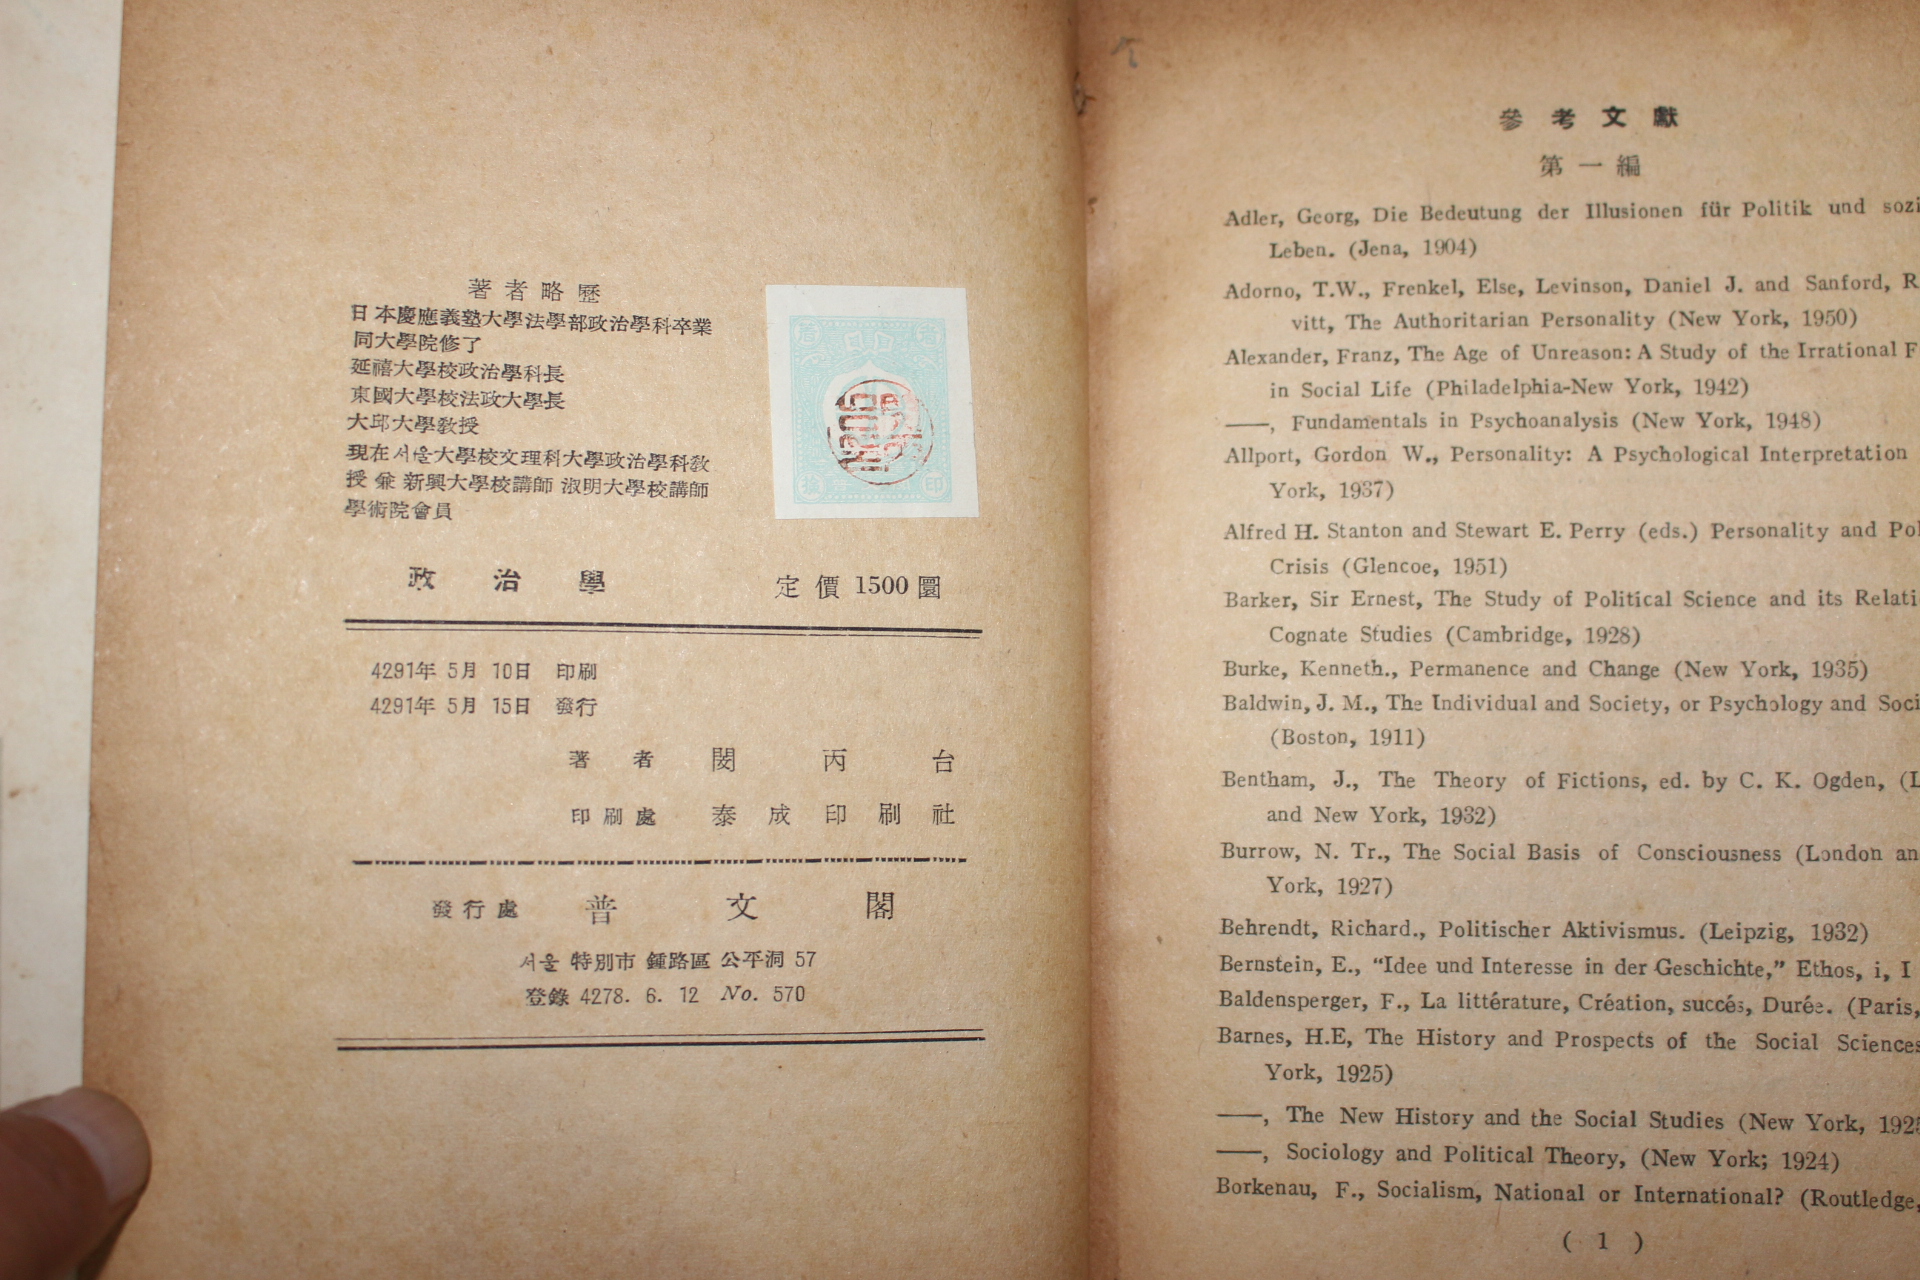 著者略歷
日本慶應義塾大學法學部政治學科卒業
同大學院修了
延禧大學校政治學科長
東國大學校法政大學長
大邱大學敎授
現在서울大學校文理科大學政治學科敎
授 兼 新興大學校講師 淑明大學校講師
學術院會員
政治學 定價 1500 圜
4291年 5月 10日 印刷
4291年 5月 15日 發行
著者 閔丙台
印刷處 泰成印刷社
發行處 普文閣
서울 特別市 鍾路區 公平洞 57
登錄 4278. 6. 12 No. 570
參考文獻
第一編
Adler, Georg, Die Bedeutung der Illusionen für Politik und sozi
Leben. (Jena, 1904)
Adorno, T.W., Frenkel, Else, Levinson, Daniel J. and Sanford, R
vitt, The Authoritarian Personality (New York, 1950)
Alexander, Franz, The Age of Unreason: A Study of the Irrational F
in Social Life (Philadelphia-New York, 1942)
——, Fundamentals in Psychoanalysis (New York, 1948)
Allport, Gordon W., Personality: A Psychological Interpretation
York, 1937)
Alfred H. Stanton and Stewart E. Perry (eds.) Personality and Pol
Crisis (Glencoe, 1951)
Barker, Sir Ernest, The Study of Political Science and its Relati
Cognate Studies (Cambridge, 1928)
Burke, Kenneth., Permanence and Change (New York, 1935)
Baldwin, J. M., The Individual and Society, or Psychology and Soci
(Boston, 1911)
Bentham, J., The Theory of Fictions, ed. by C. K. Ogden, (L
and New York, 1932)
Burrow, N. Tr., The Social Basis of Consciousness (London an
York, 1927)
Behrendt, Richard., Politischer Aktivismus. (Leipzig, 1932)
Bernstein, E., “Idee und Interesse in der Geschichte,” Ethos, i, I
Baldensperger, F., La littérature, Création, succés, Durée. (Paris,
Barnes, H.E, The History and Prospects of the Social Sciences
York, 1925)
——, The New History and the Social Studies (New York, 1925
——, Sociology and Political Theory, (New York; 1924)
Borkenau, F., Socialism, National or International? (Routledge,
( 1 )